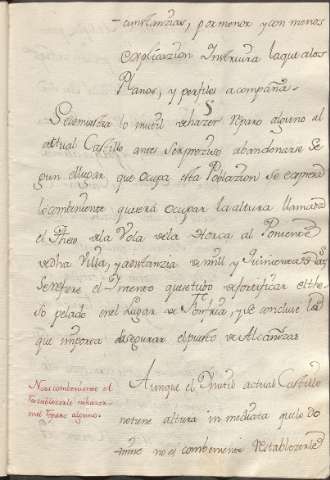 -cunstanzias, por menor y con menos
explicazion Instruira la que a los
Planos, y perfiles acompaña.
Se demuestra lo inutil de hazer reparo alguno al
attual Castillo antes ser preziso abandonarse se
gun el lugar que ocupa esta Poblazion se expresa
lo combeniente quiera ocupar la altura llamada
el de la de la Horca al Poniente
de dha Villa, y a distanzia de mill y Quinientas
Se refiere el Yntento que se tubo de fortificar el the
so pelado en el Lugar de y se concluie lo
que importa assegurar el puesto de Alcañizar
No es combeniente el
restablezerle ni hazer
me reparo alguno.
Aunque el Ynutil actual Castillo
no tiene altura inmediata que le do
mine no es combeniente restablezerle